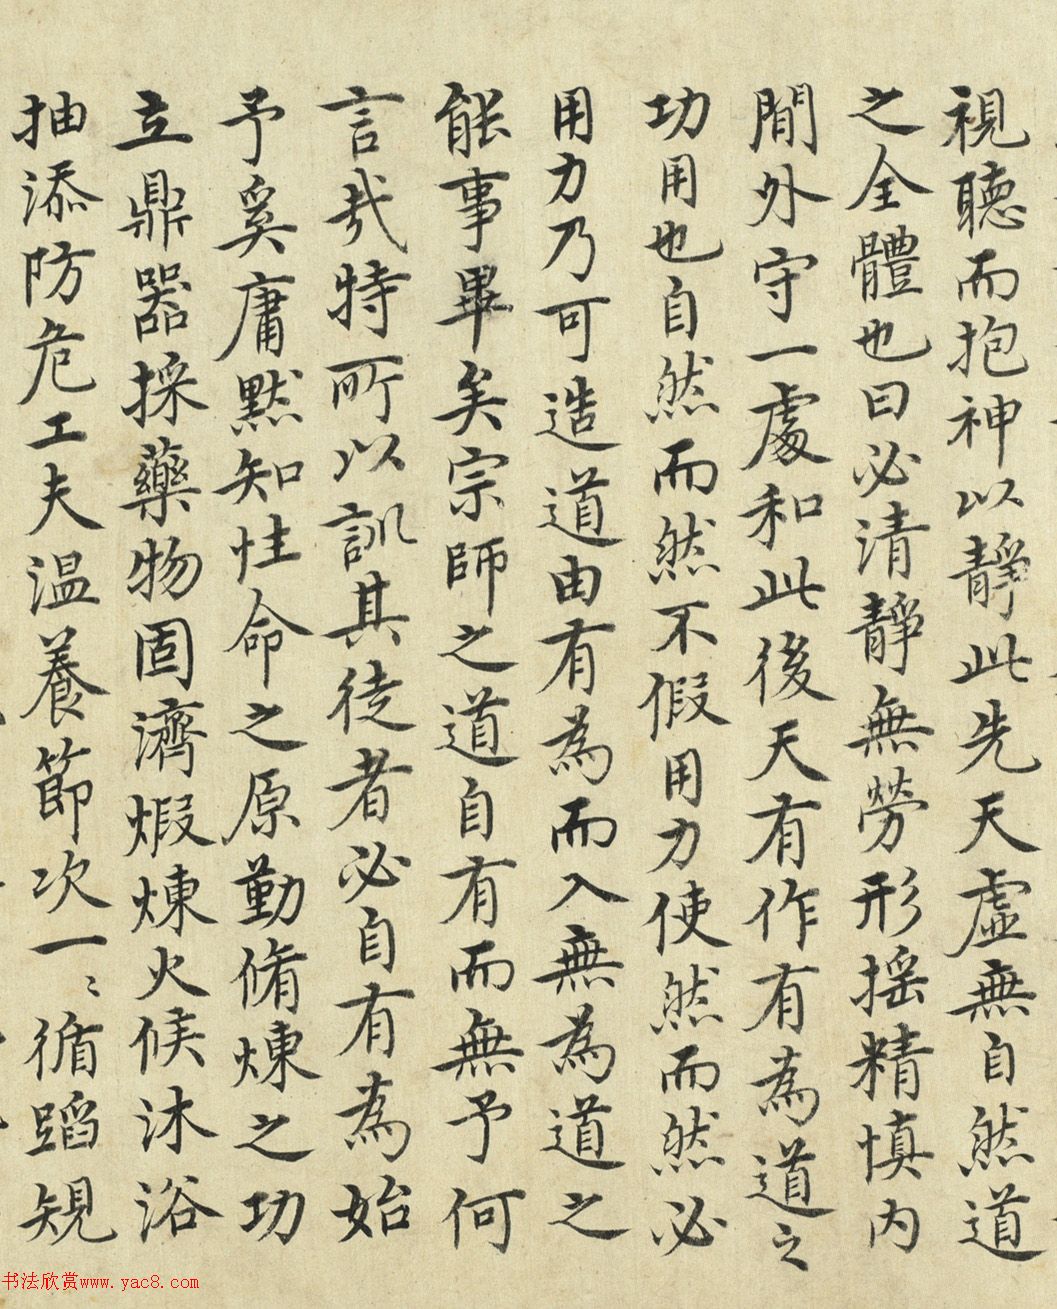 視聽而抱神以靜此先天虛無自然道
之全體也曰必清靜無勞形搖精慎內
閒外守一處和此後天有作有為道之
功用也自然而然不假用力使然而然必
用力乃可造道由有為而入無為道之
能事畢矣宗師之道自有而無予何
言哉特所以訓其徒者必自有為始
予奚庸默知性命之原勤脩煉之功
立鼎器採藥物固濟煆煉火候沐浴
抽添防危工夫溫養節次一〻循蹈規
书法欣赏www.yac8.com